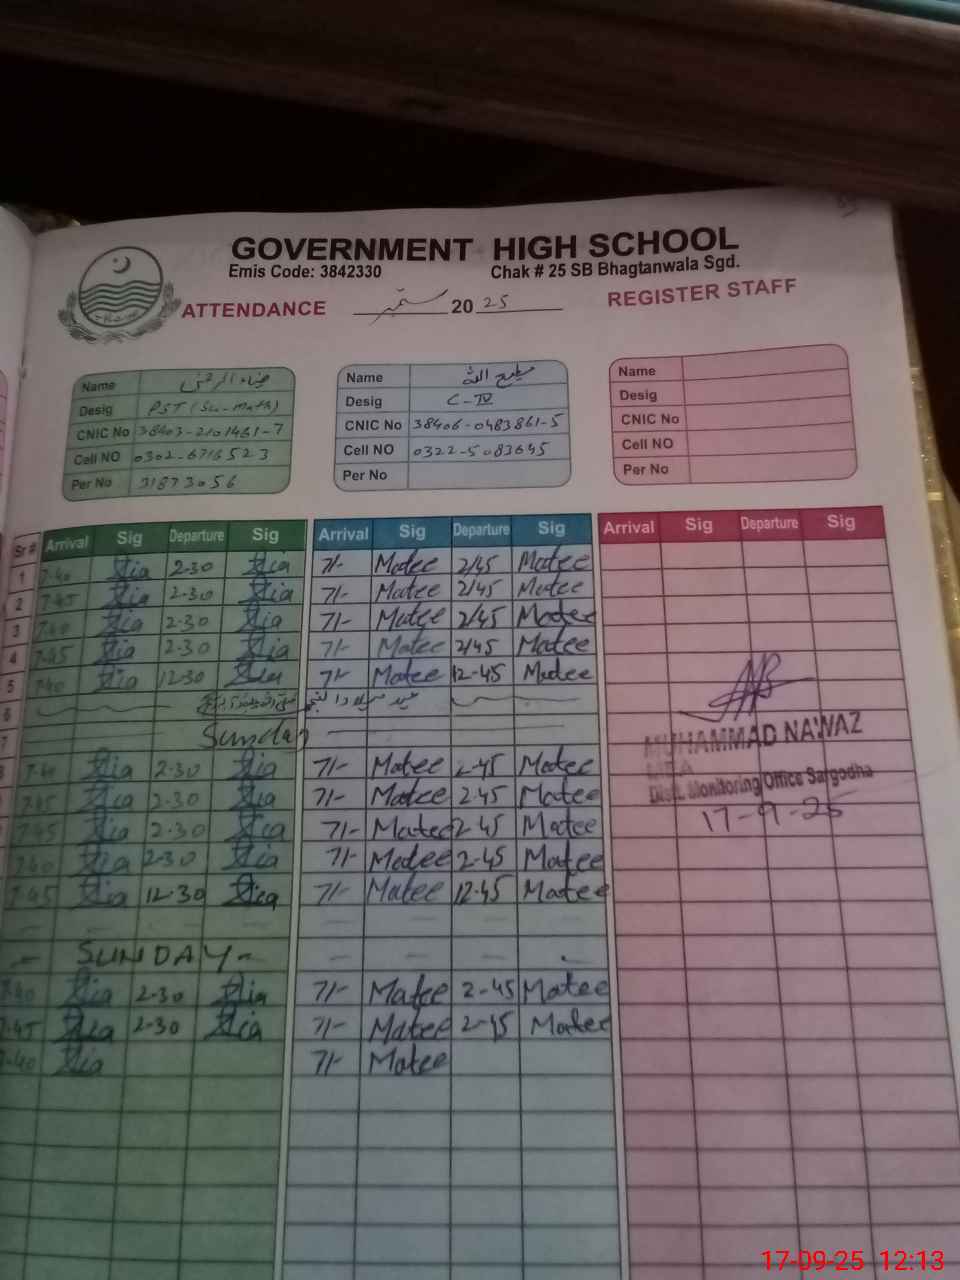 GOVERNMENT HIGH SCHOOL
Emis Code: 3842330 Chak # 25 SB Bhagtanwala Sgd.
ATTENDANCE ستمبر 20 25 REGISTER STAFF
Name ضیاء الرحمن
Desig PST (Sci-math)
CNIC No 38403-2101461-7
Cell NO 0302-6716523
Per No 31873056
Name مطیع اللہ
Desig C-IV
CNIC No 38406-0483861-5
Cell NO 0322-5083645
Per No
Name
Desig
CNIC No
Cell NO
Per No
Sr # Arrival Sig Departure Sig Arrival Sig Departure Sig Arrival Sig Departure Sig
1 7-40 Zia 2-30 Zia 7/- Matee 2/45 Matee
2 7-45 Zia 2-30 Zia 7/- Matee 2/45 Matee
3 7-40 Zia 2-30 Zia 7/- Matee 2/45 Matee
4 7-45 Zia 2-30 Zia 7/- Matee 2/45 Matee
5 7-40 Zia 12-30 Zia 7/- Matee 12-45 Matee
6 عید میلاد النبی
7 Sunday
7-40 Zia 2-30 Zia 7/- Matee 2-45 Matee
7-45 Zia 2-30 Zia 7/- Matee 2-45 Matee
7-45 Zia 2-30 Zia 7/- Matee 2-45 Matee
7-40 Zia 2-30 Zia 7/- Matee 2-45 Matee
7-45 Zia 12-30 Zia 7/- Matee 12-45 Matee
- SUNDAY -
7-40 Zia 2-30 Zia 7/- Matee 2-45 Matee
7-45 Zia 2-30 Zia 7/- Matee 2-45 Matee
7-40 Zia 7/- Matee
MUHAMMAD NAWAZ
MEA
Distt. Monitoring Office Sargodha
17-9-25
17-09-25 12:13